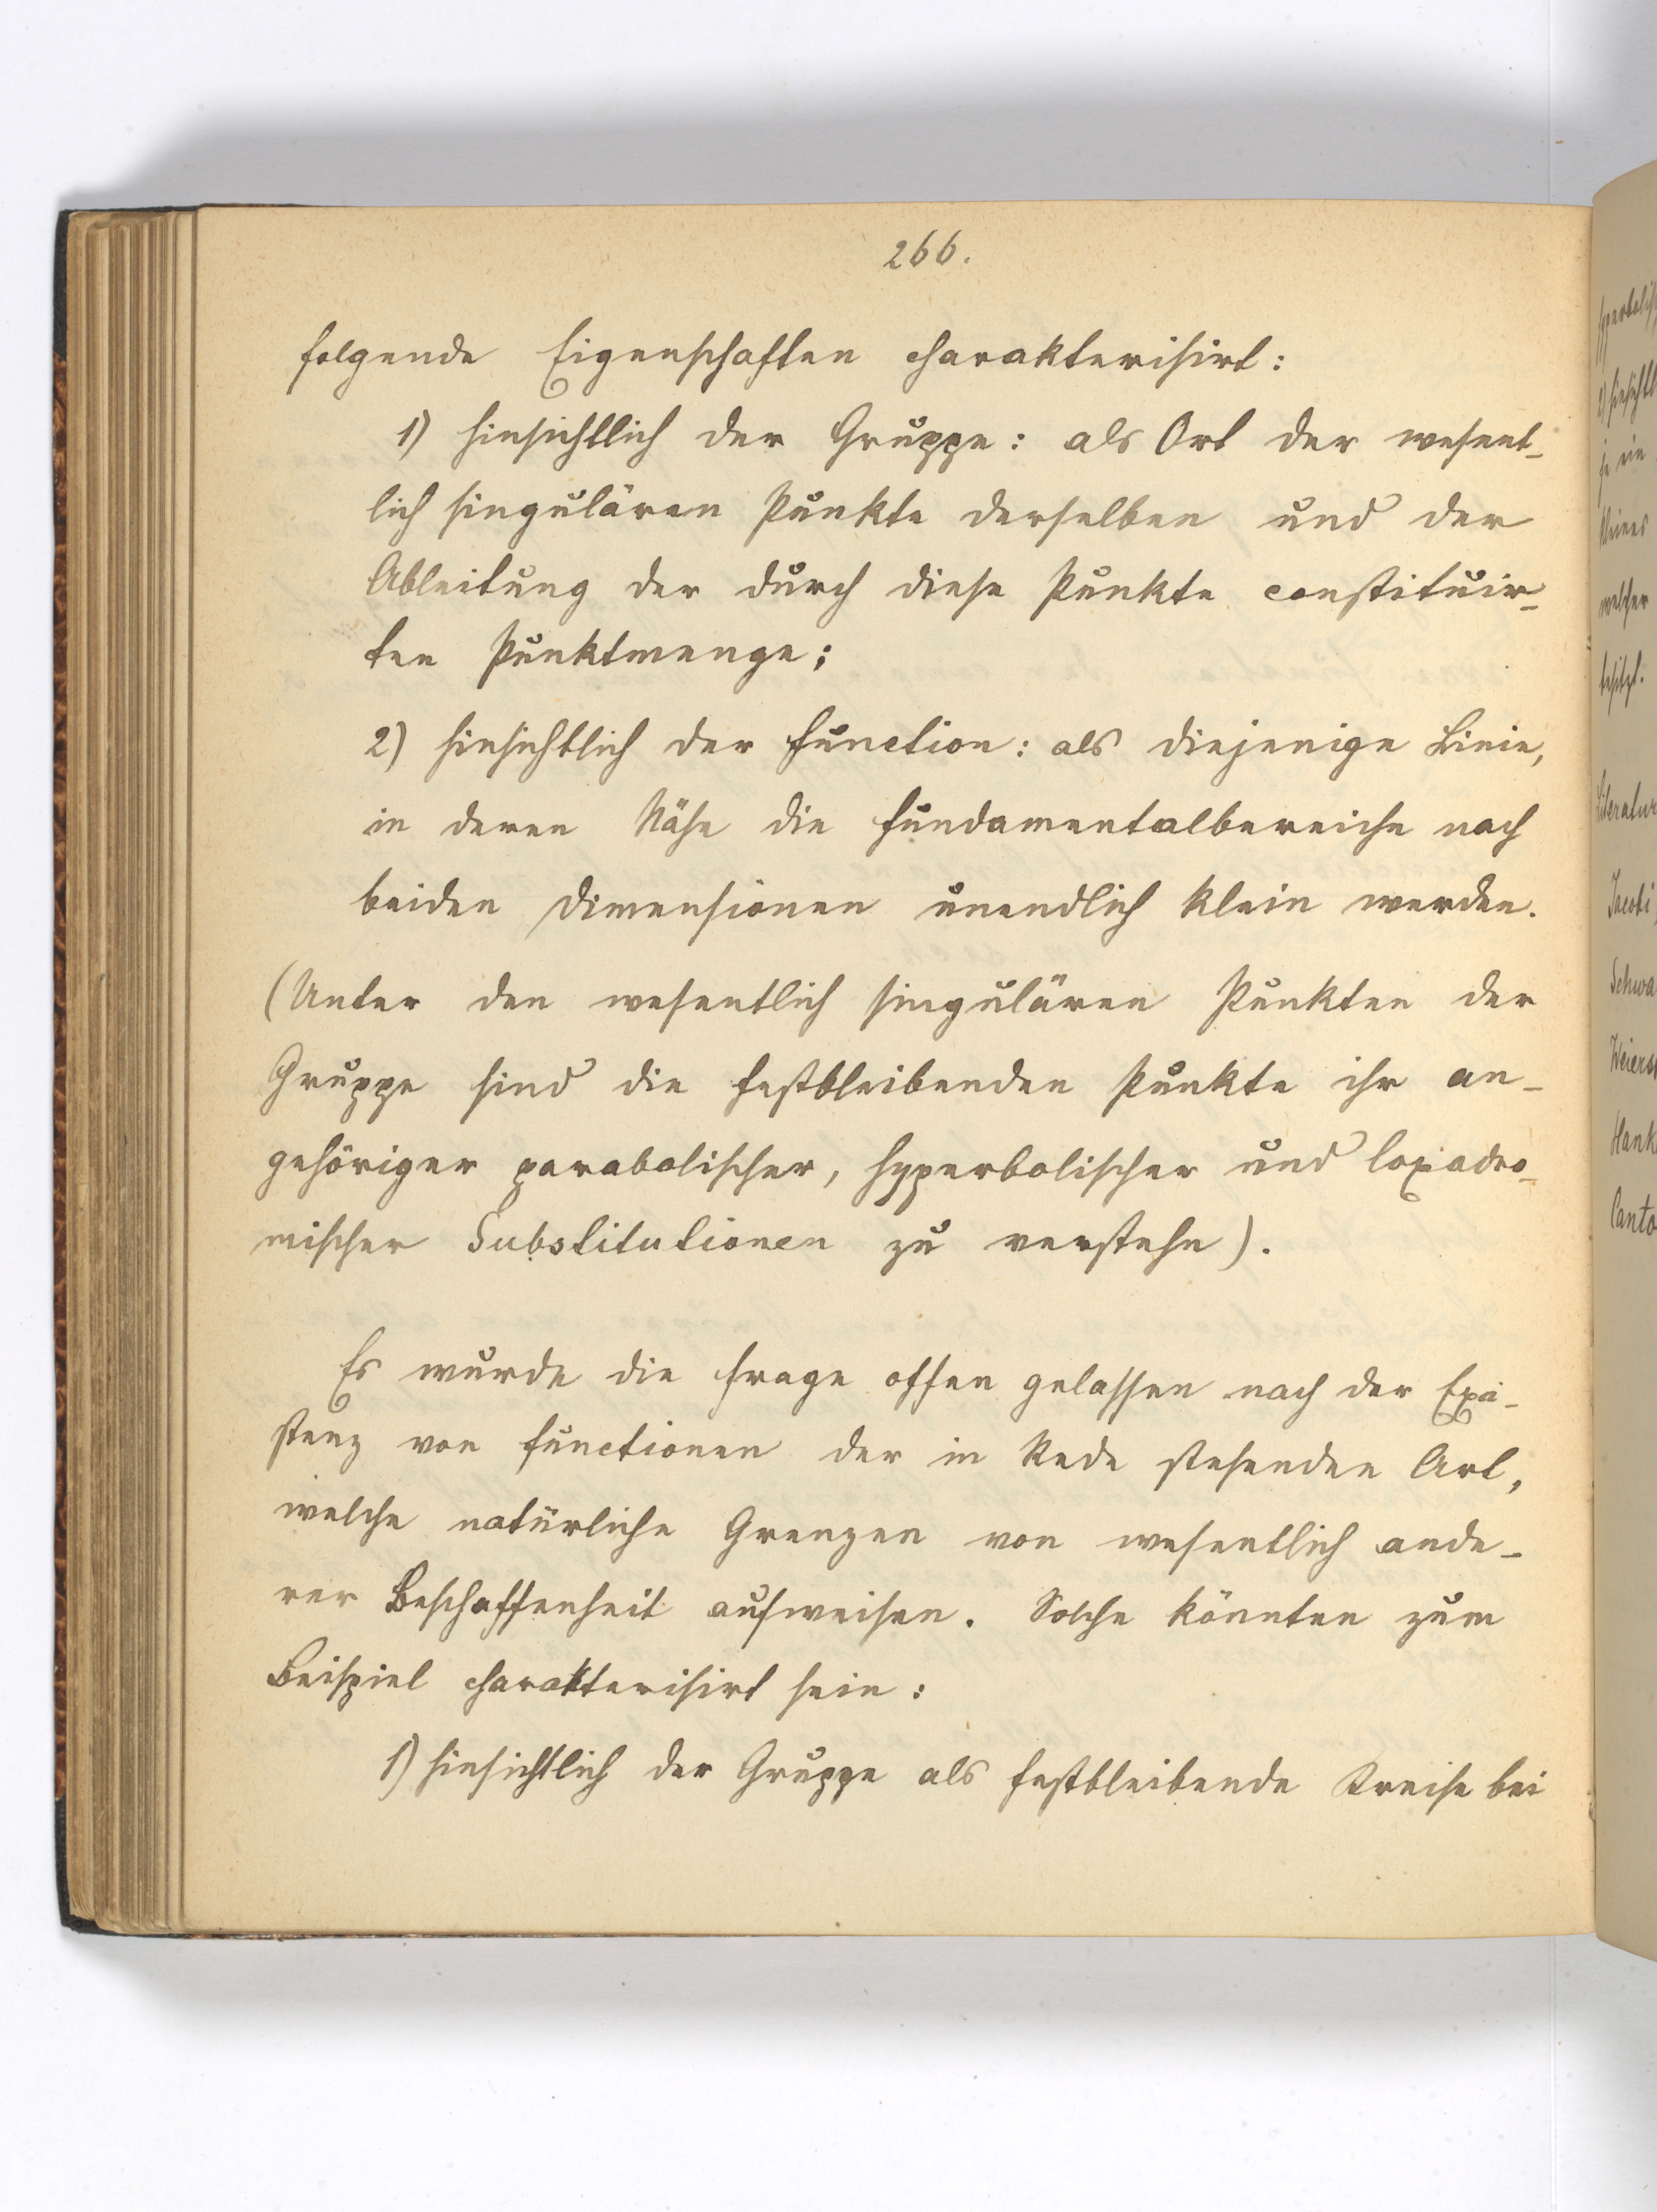 266.
folgende Eigenschaften charakterisirt:
1) hinsichtlich der Gruppe: als Ort der wesent-
lich singulären Punkte derselben und der
Ableitung der durch diese Punkte constituir-
ten Punktmenge;
2) hinsichtlich der Function: als diejenige Linie,
in deren Nähe die Fundamentalbereiche nach
beiden Dimensionen unendlich klein werden.
(Unter den wesentlich singulären Punkten der
Gruppe sind die festbleibenden Punkte ihr an-
gehöriger parabolischer, hyperbolischer und loxodro-
mischer Substitutionen zu verstehn).
Es wurde die Frage offen gelassen nach der Exi-
stenz von Functionen der in Rede stehenden Art,
welche natürliche Grenzen von wesentlich ande-
rer Beschaffenheit aufweisen. Solche könnten zum
Beispiel charakterisirt sein:
1) hinsichtlich der Gruppe als festbleibende Kreise bei
2) hinsichtl
je ein
kleines
welcher
besitzt.
Literatur
Jacobi,
Schwa
Weiers
Hank
Canto